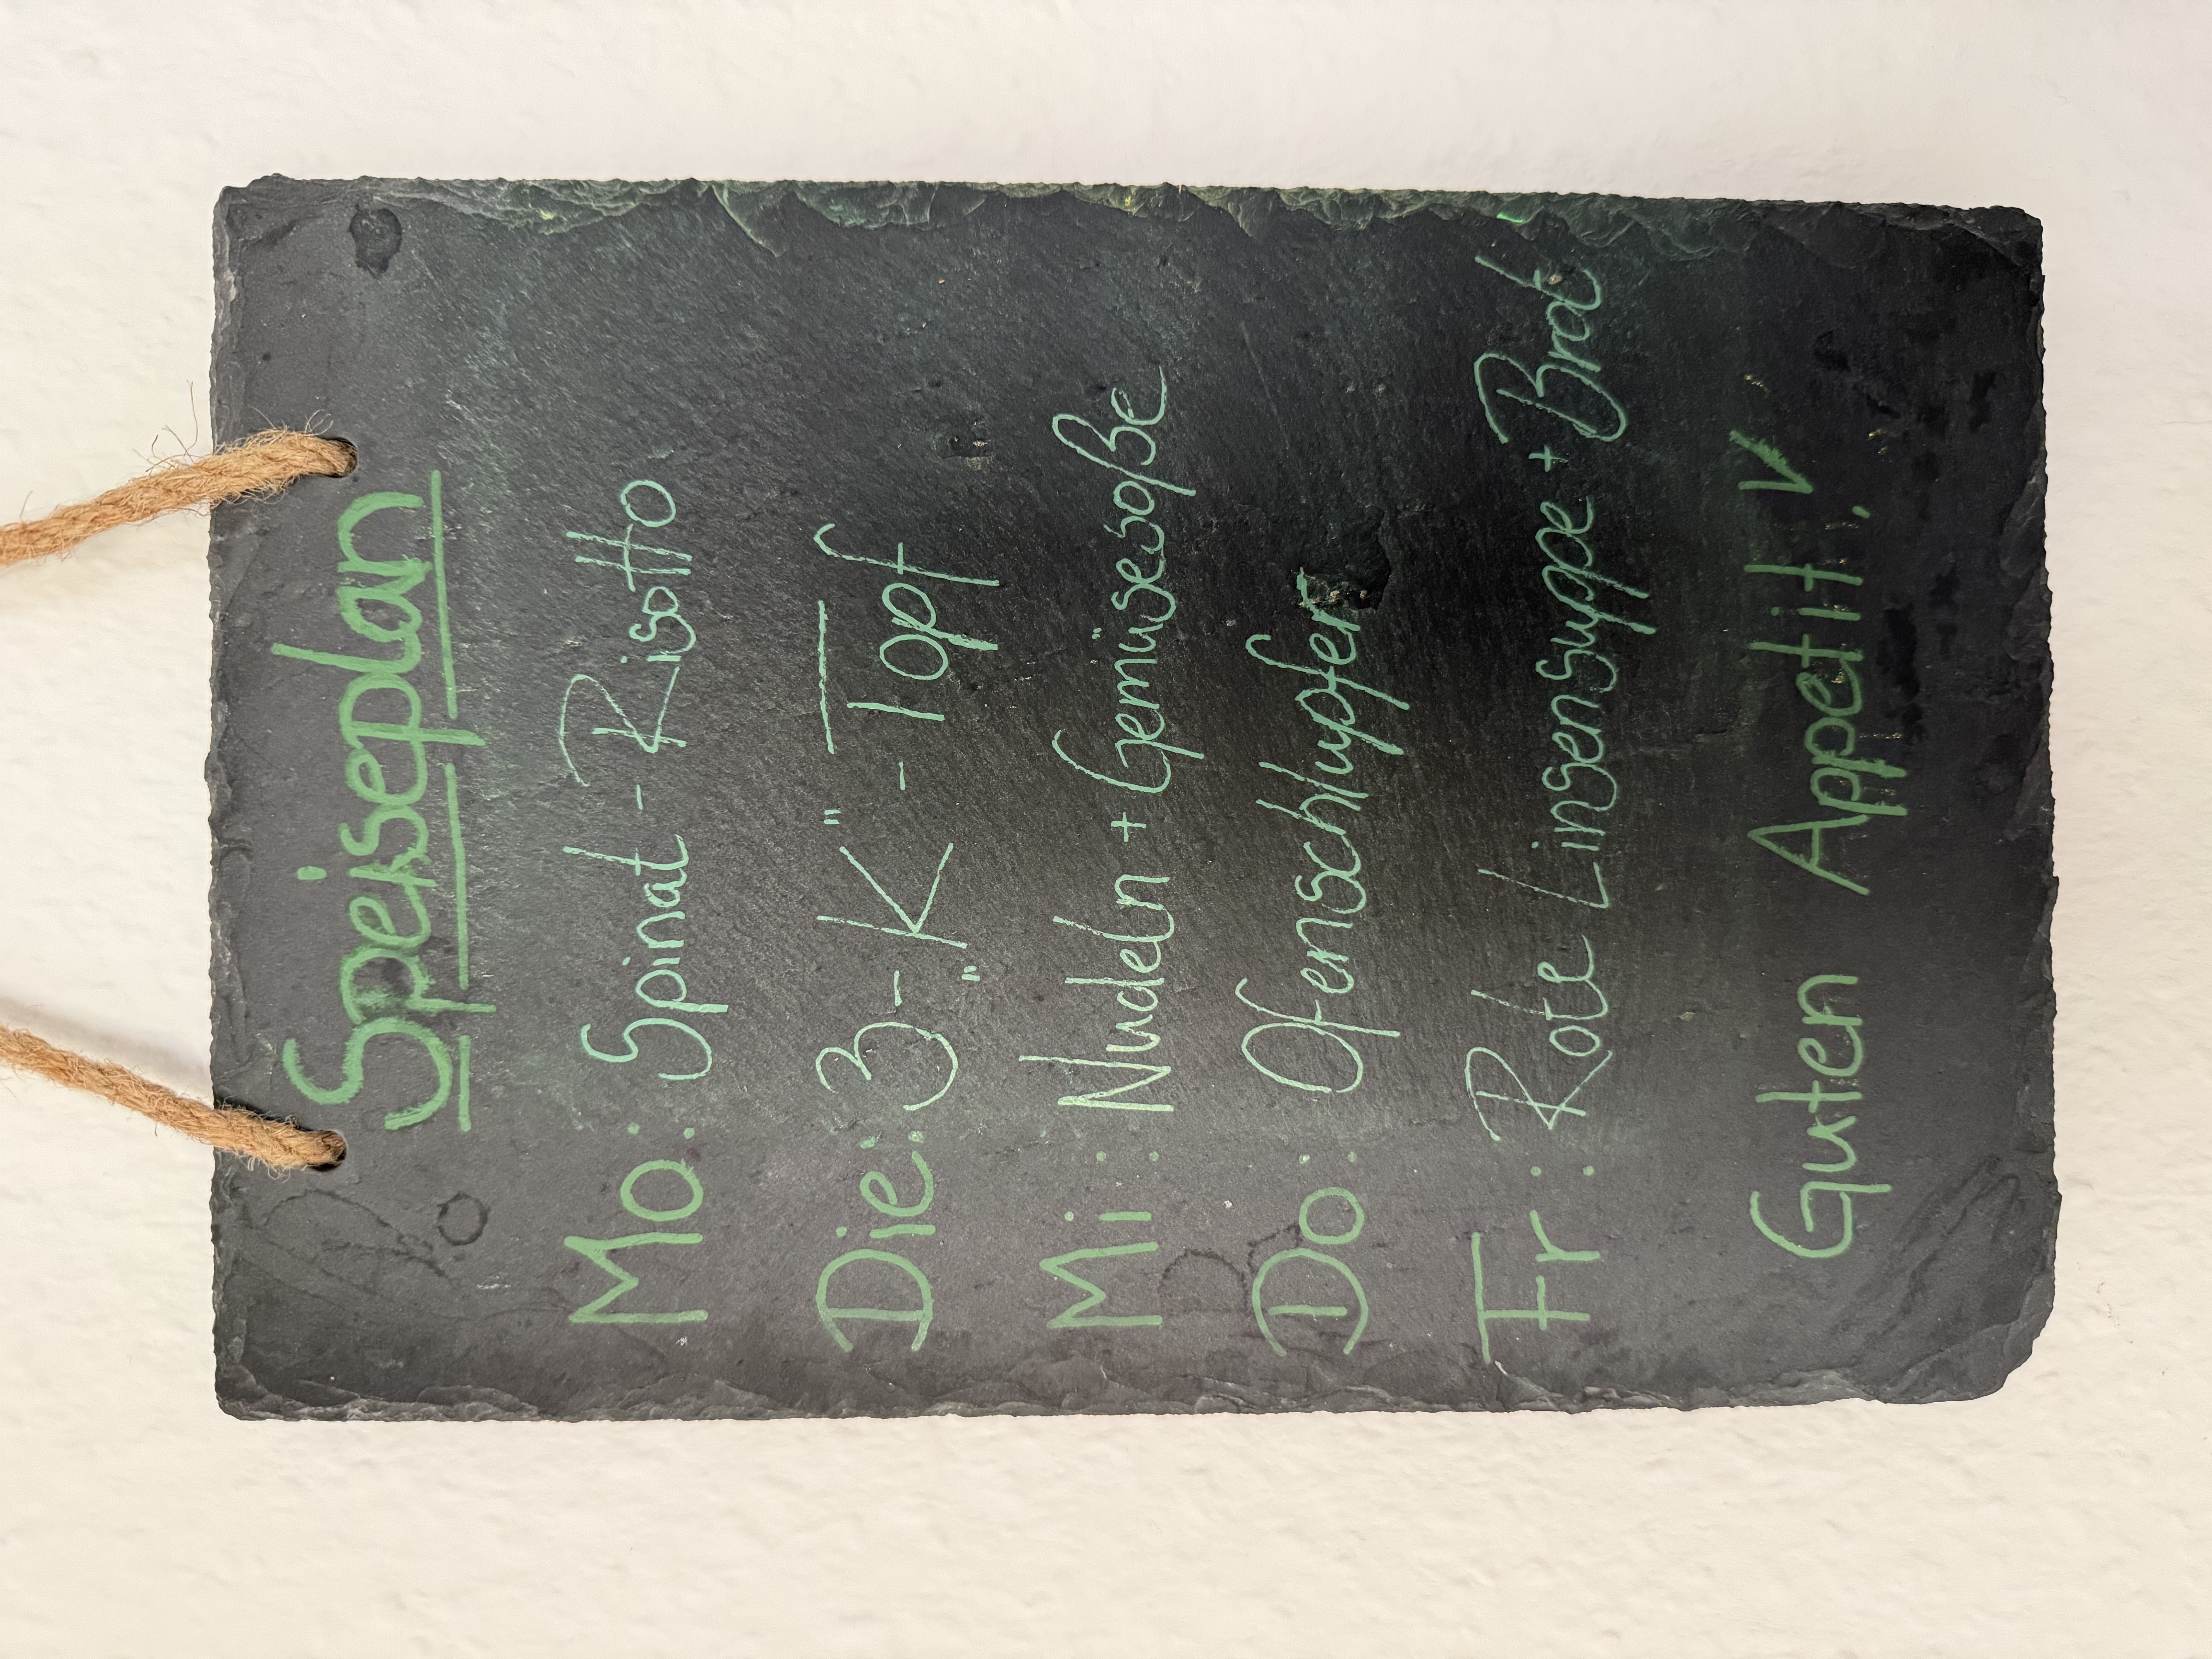 Speiseplan
Mo: Spinat - Risotto
Die: 3-„K" - Topf
Mi: Nudeln + Gemüsesoße
Do: Ofenschlupfer
Fr: Rote Linsensuppe + Brot
Guten Appetit!